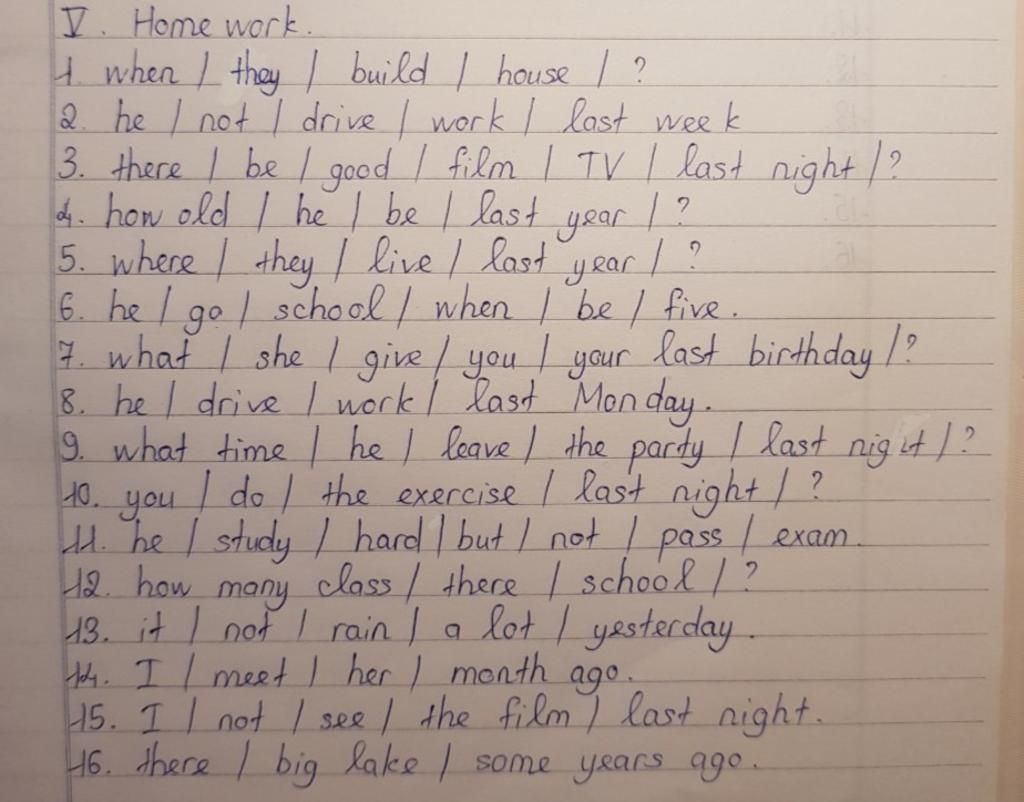 V. Home work.
1. when / they / build / house / ?
2. he / not / drive / work / last week
3. there / be / good / film / TV / last night / ?
4. how old / he / be / last year / ?
5. where / they / live / last year / ?
6. he / go / school / when / be / five.
7. what / she / give / you / your last birthday / ?
8. he / drive / work / last Monday.
9. what time / he / leave / the party / last night / ?
10. you / do / the exercise / last night / ?
11. he / study / hard / but / not / pass / exam.
12. how many class / there / school / ?
13. it / not / rain / a lot / yesterday.
14. I / meet / her / month ago.
15. I / not / see / the film / last night.
16. there / big lake / some years ago.